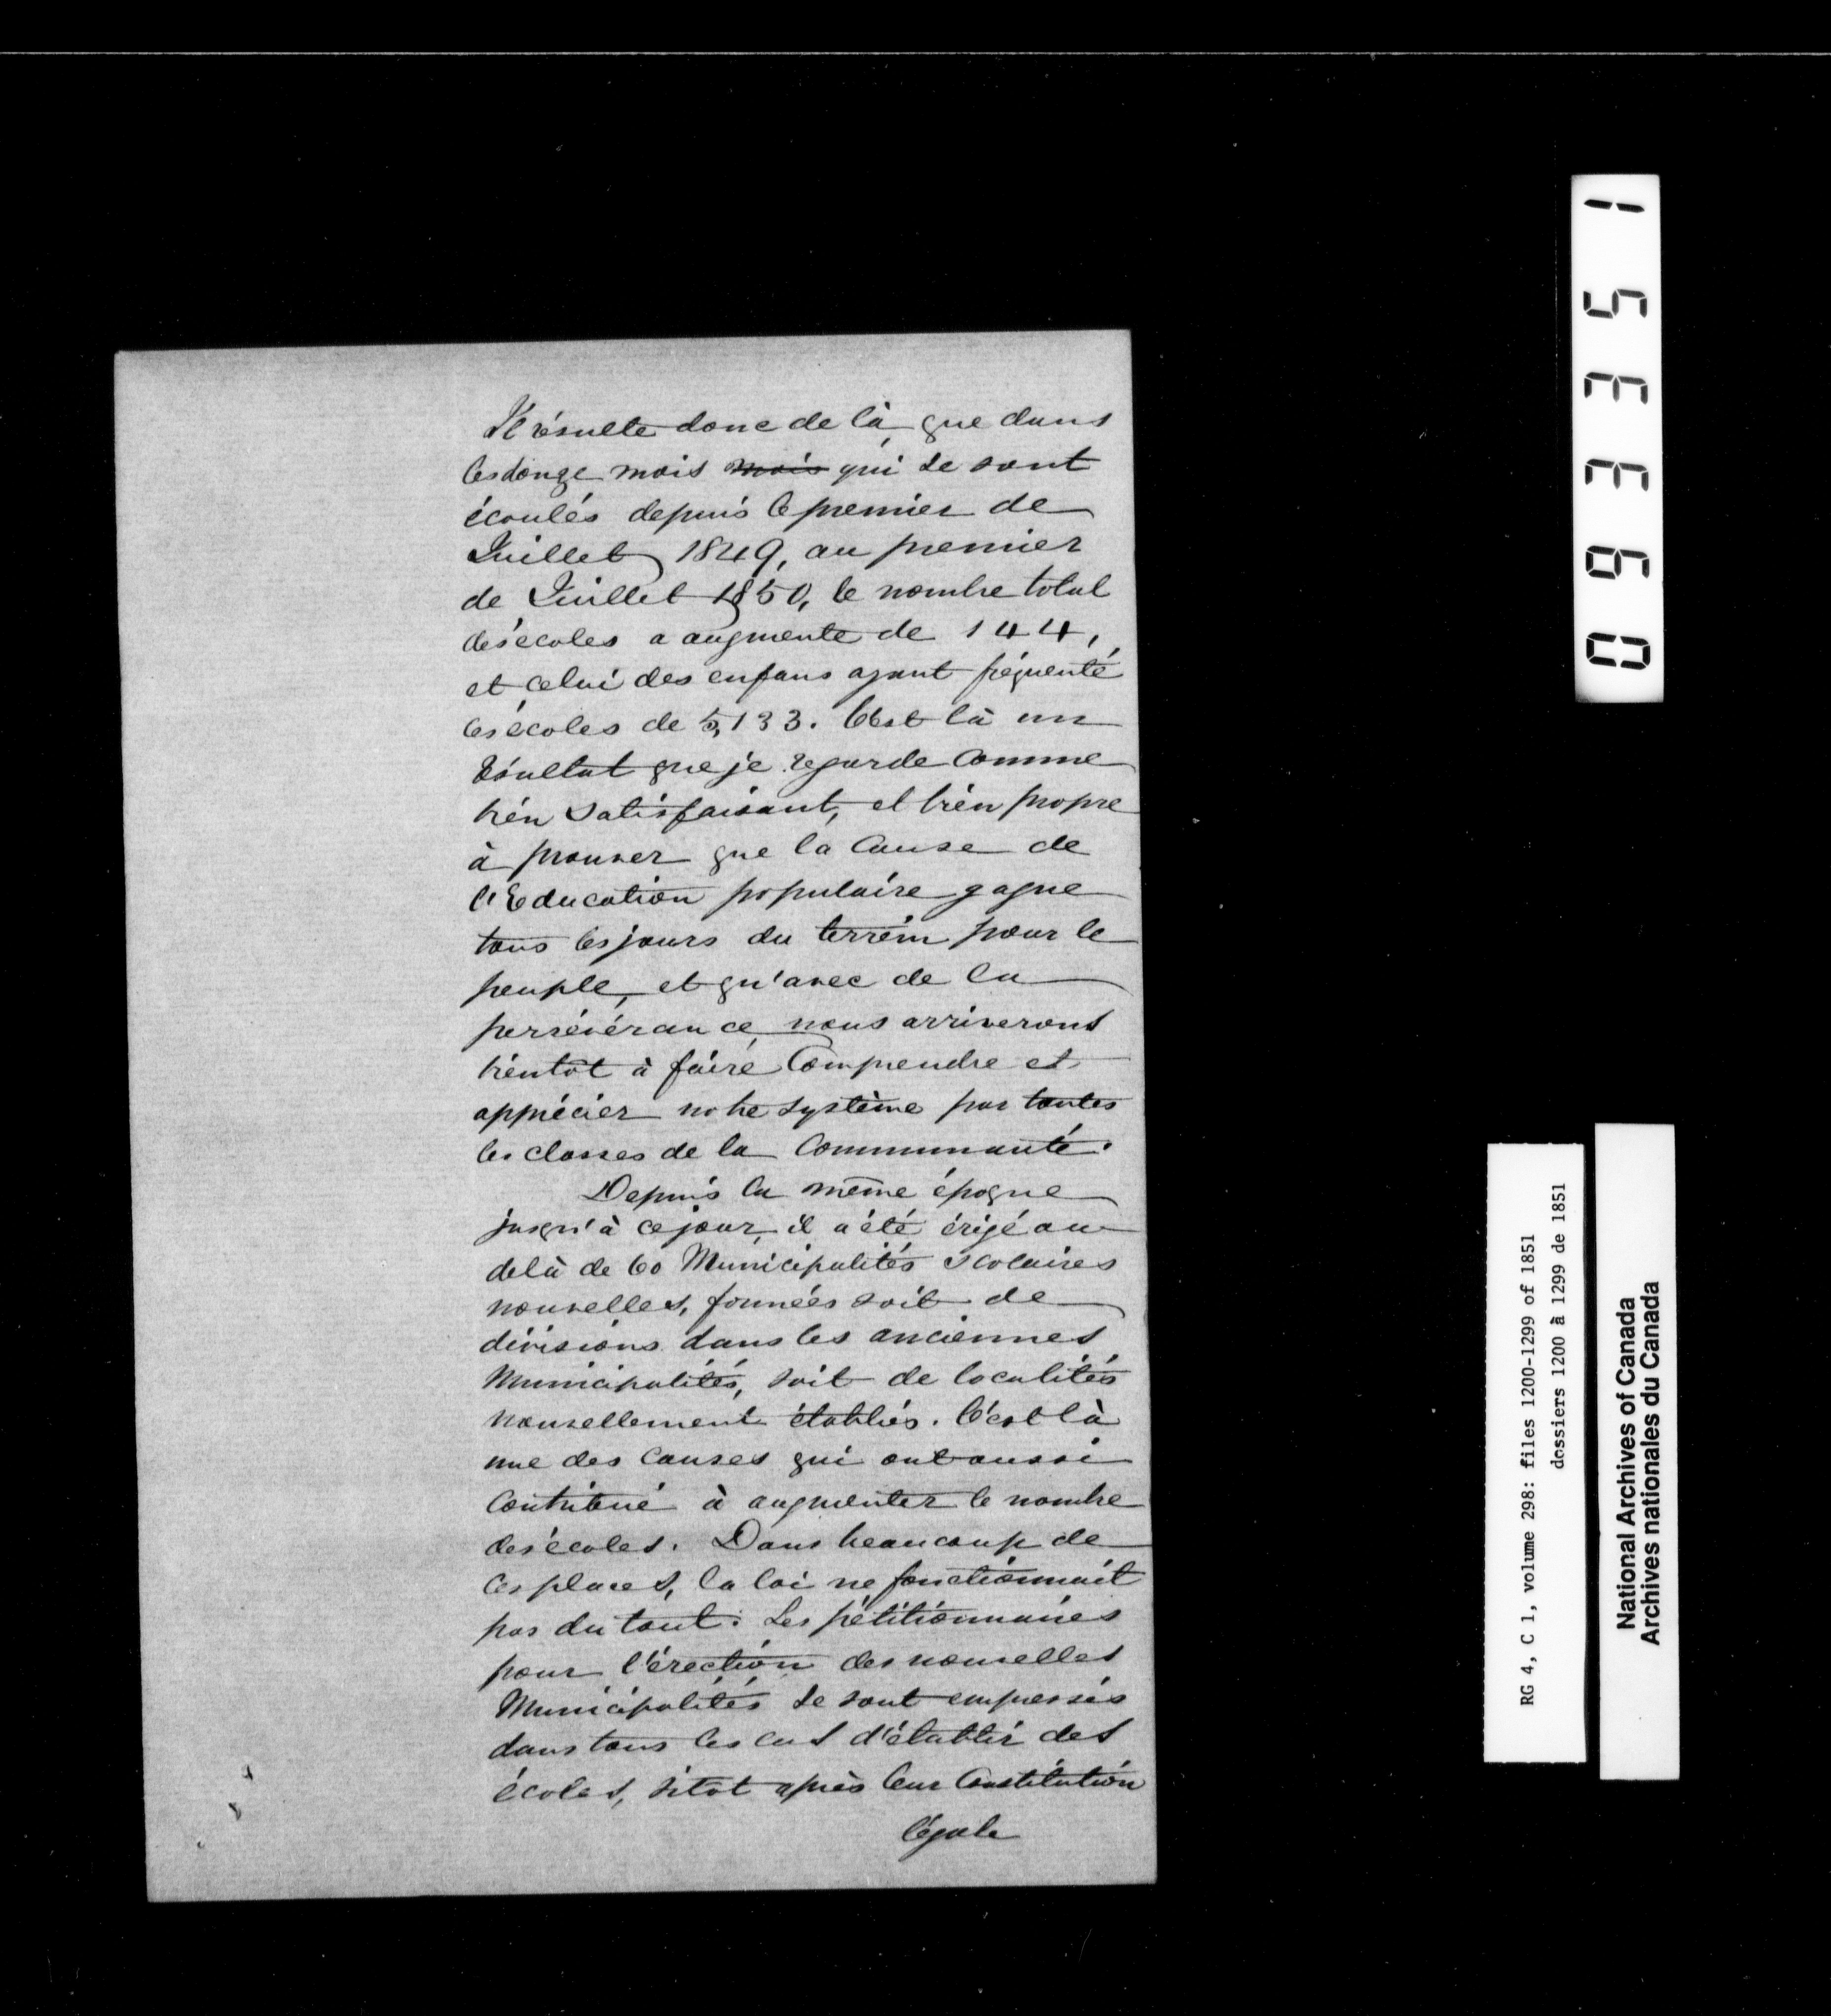 Il résulte donc de là, que dans
les douze mois mois qui se sont
écoulés depuis le premier de
Juillet 1849, au premier
de Juillet 1850, le nombre total
des écoles a augmenté de 144,
et celui des enfans ayant fréquenté
les écoles de 5,133. C'est là un
résultat que je regarde comme
bién satisfaisant, et bién propre
à prouver que la Cause de
l'Education populaire gagne
tous les jours du terrein pour le
peuple, et qu'avec de la
persévérance, nous arriverons
biéntôt à faire Comprendre et
apprécier notre système par toutes
les classes de la Communauté.
Depuis la même époque
jusqu'à ce jour, il a été érigé au
delà de 60 Municipalités Scolaires
nouvelles, formées soit de
divisions dans les anciennes
Municipalités, soit de localités
nouvellement établies. C'est là
une des Causes qui ont aussi
Contribué à augmenter le nombre
des écoles. Dans beaucoup de
Ces places, la loi ne fonctionnait
pas du tout. Les pétitionnaires
pour l'érection des nouvelles
Municipalités se sont empressés
dans tous les cas d'établir des
écoles, sitot après leur Constitution
légale
0 9 3 3 5 1
RG 4, C 1, volume 298: files 1200-1299 of 1851
dossiers 1200 à 1299 de 1851
National Archives of Canada
Archives nationales du Canada